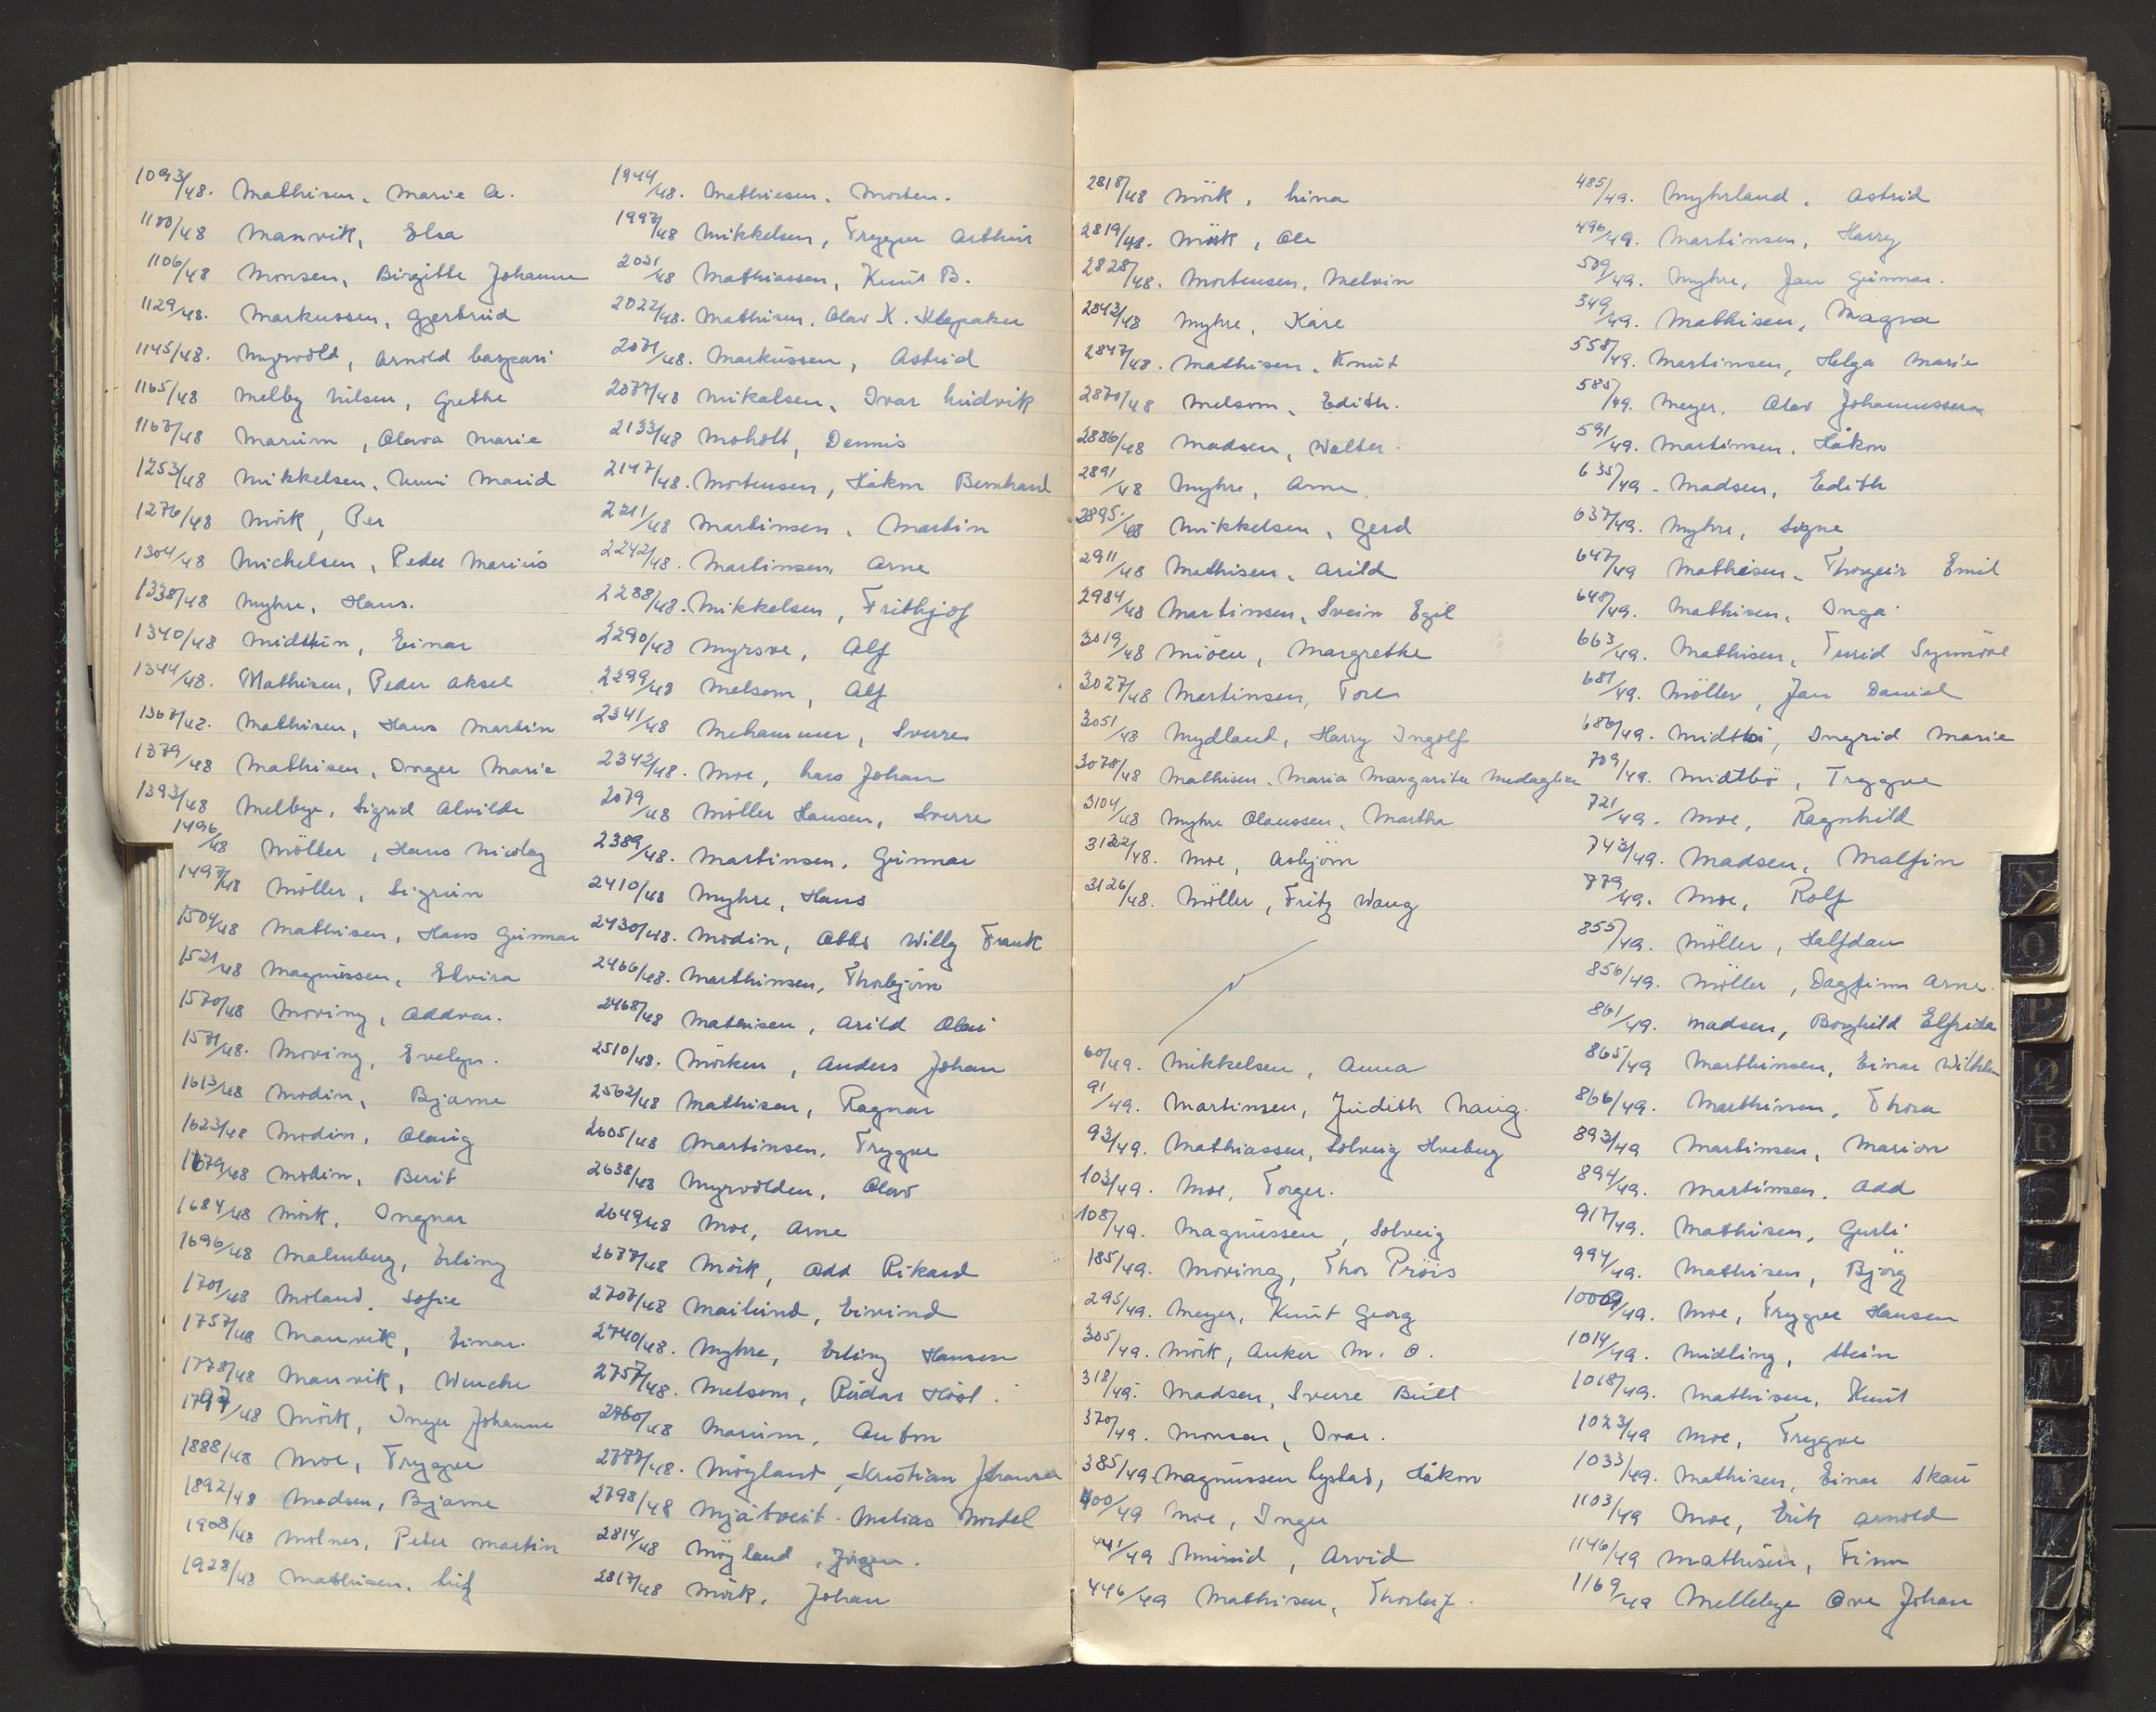 1093/48. Mathisen, Marie A.
1100/48 Manvik, Elsa
1106/48 Monsen, Birgitte Johanne
1129/48. Markussen, Gjertrud
1145/48. Myrvold, Arnold
1165/48 Melby Nilsen, Grethe
1167/48 Marum, Olava Marie
1253/48 Mikkelsen, Unni Marid
1276/48 Mörk, Per
1304/48 Michelsen, Peder Marius
1338/48 Myhre, Hans.
1340/48 Einar
1344/48. Mathisen, Peder Aksel
1367/48. Mathisen, Hans Martin
1379/48 Mathisen, Inger Marie
1393/48 Melbye, Sigrid Alvilde
1496/48 Möller, Hans Nicolay
1497/48 Möller, Sigrun
1504/48 Mathisen, Hans Gunnar
1521/48 Magnussen, Elvira
1570/48 Moring, Oddvar.
1571/48. Moring, Evelyn.
1613/48 Modin, Bjarne
1623/48 Modin, Olaug
1679/48 Modin, Berit
1684/48 Mörk, Ingvar
1696/48 Malmberg, Erling
1701/48 Moland, Sofie
1757/48 Manvik, Einar.
1778/48 Manvik, Wenche
1797/48 Mörk, Inger Johanne
1888/48 Moe, Trygve
1892/48 Madsen, Bjarne
1908/48 Molnes, Peder Martin
1928/48 Mathisen, Leif
1944/48. Mathiesen, Morten.
1997/48 Mikkelsen, Trygve Arthur
2021/48 Mathiassen, Knut B.
2022/48. Mathisen, Olav K. Klepaker
2071/48. Markussen, Astrid
2077/48 Mikalsen, Ivar Ludvik
2133/48 Moholt, Dennis
2147/48. Mortensen, Håkon Bernhard
2211/48 Martinsen, Martin
2242/48. Martinsen, Arne
2288/48. Mikkelsen, Frithjof
2290/48 Myrsve, Alf
2299/48 Melsom, Alf
2341/48 Mehammer, Sverre
2342/48. Moe, Lars Johan
2079/48 Möller Hansen, Sverre
2389/48. Martinsen, Gunnar
2410/48 Myhre, Hans
2430/48. Modin, Willy Frank
2466/48. Marthinsen, Thorbjörn
2468/48 Mathisen, Arild Olai
2510/48. Mörken, Anders Johan
2562/48 Mathisen, Ragnar
2605/48 Martinsen, Trygve
2638/48 Myrvolden, Olav
2649/48 Moe, Arne
2677/48 Mörk, Odd Rikard
2707/48 Mailund, Eivind
2740/48. Myhre, Erling Hansen
2757/48. Melsom, Reidar Höst.
2760/48 Marum, Anton
2777/48. Möyland, Kristian Johannes
2798/48 Mjåtveit. Matias Mordal
2814/48 Möyland, Jörgen.
2817/48 Mörk, Johan
2818/48 Mörk, Lina
2819/48. Mörk, Ole
2828/48. Mortensen, Melvin
2843/48 Myhre, Kåre
2847/48. Mathisen, Knut
2870/48 Melsom, Edith.
2886/48 Madsen, Walter.
2891/48 Myhre, Arne
2895/48 Mikkelsen, Gerd
2911/48 Mathisen, Arild
2984/48 Martinsen, Svein Egil
3019/48 Möen, Margrethe
3027/48 Martinsen, Tore
3051/48 Mydland, Harry Ingolf
3078/48 Mathisen, Maria Margarita Medaglia
3104/48 Myhre Olaussen, Martha
3122/48. Moe, Asbjörn
3126/48. Möller, Fritz Wang
60/49. Mikkelsen, Anna
91/49. Martinsen, Judith Haug.
93/49. Mathiassen, Solveig Hveberg
103/49. Moe, Torger.
108/49. Magnussen, Solveig
185/49. Moring, Thor Pröis
295/49. Meyer, Knut Georg
305/49. Mörk, Anker M. O.
318/49. Madsen, Sverre Bull
370/49. Monsen, Ivar.
385/49. Magnussen Lystad, Håkon
400/49 Moe, Inger
441/49 Arvid
446/49 Mathisen, Thorleif.
485/49. Myhrland, Astrid
496/49. Martinsen, Harry
509/49. Myhre, Jan Gunnar.
349/49. Mathisen, Magna
558/49. Martinsen, Helga Marie
585/49. Meyer, Olav Johannessen
591/49. Martinsen, Håkon
635/49. Madsen, Edith
637/49. Myhre, Signe
647/49 Mathisen, Thorgeir Emil
648/49. Mathisen, Inga
663/49. Mathisen, Turid Synnöve
681/49. Möller, Jan Daniel
686/49. Midtbö, Ingrid Marie
709/49. Midtbö, Trygve
721/49. Moe, Ragnhild
743/49. Madsen, Malfin
779/49. Moe, Rolf
855/49. Möller, Halfdan
856/49. Möller, Dagfinn Arne.
861/49. Madsen, Borghild Elfrida
865/49 Marthinsen, Einar Wilhelm
866/49. Marthinsen, Thora
893/49 Martinsen, Marion
894/49. Martinsen, Odd
917/49. Mathisen, Gurli
994/49. Mathisen, Björg
1000/49. Moe, Trygve Hansen
1014/49. Midling, Stein
1018/49. Mathisen, Knut
1023/49 Moe, Trygve
1033/49. Mathisen, Einar Skau
1103/49 Moe, Erik Arnold
1146/49 Mathisen, Finn
1169/49 Mellebye Ove Johan
N
O
P
Q
R